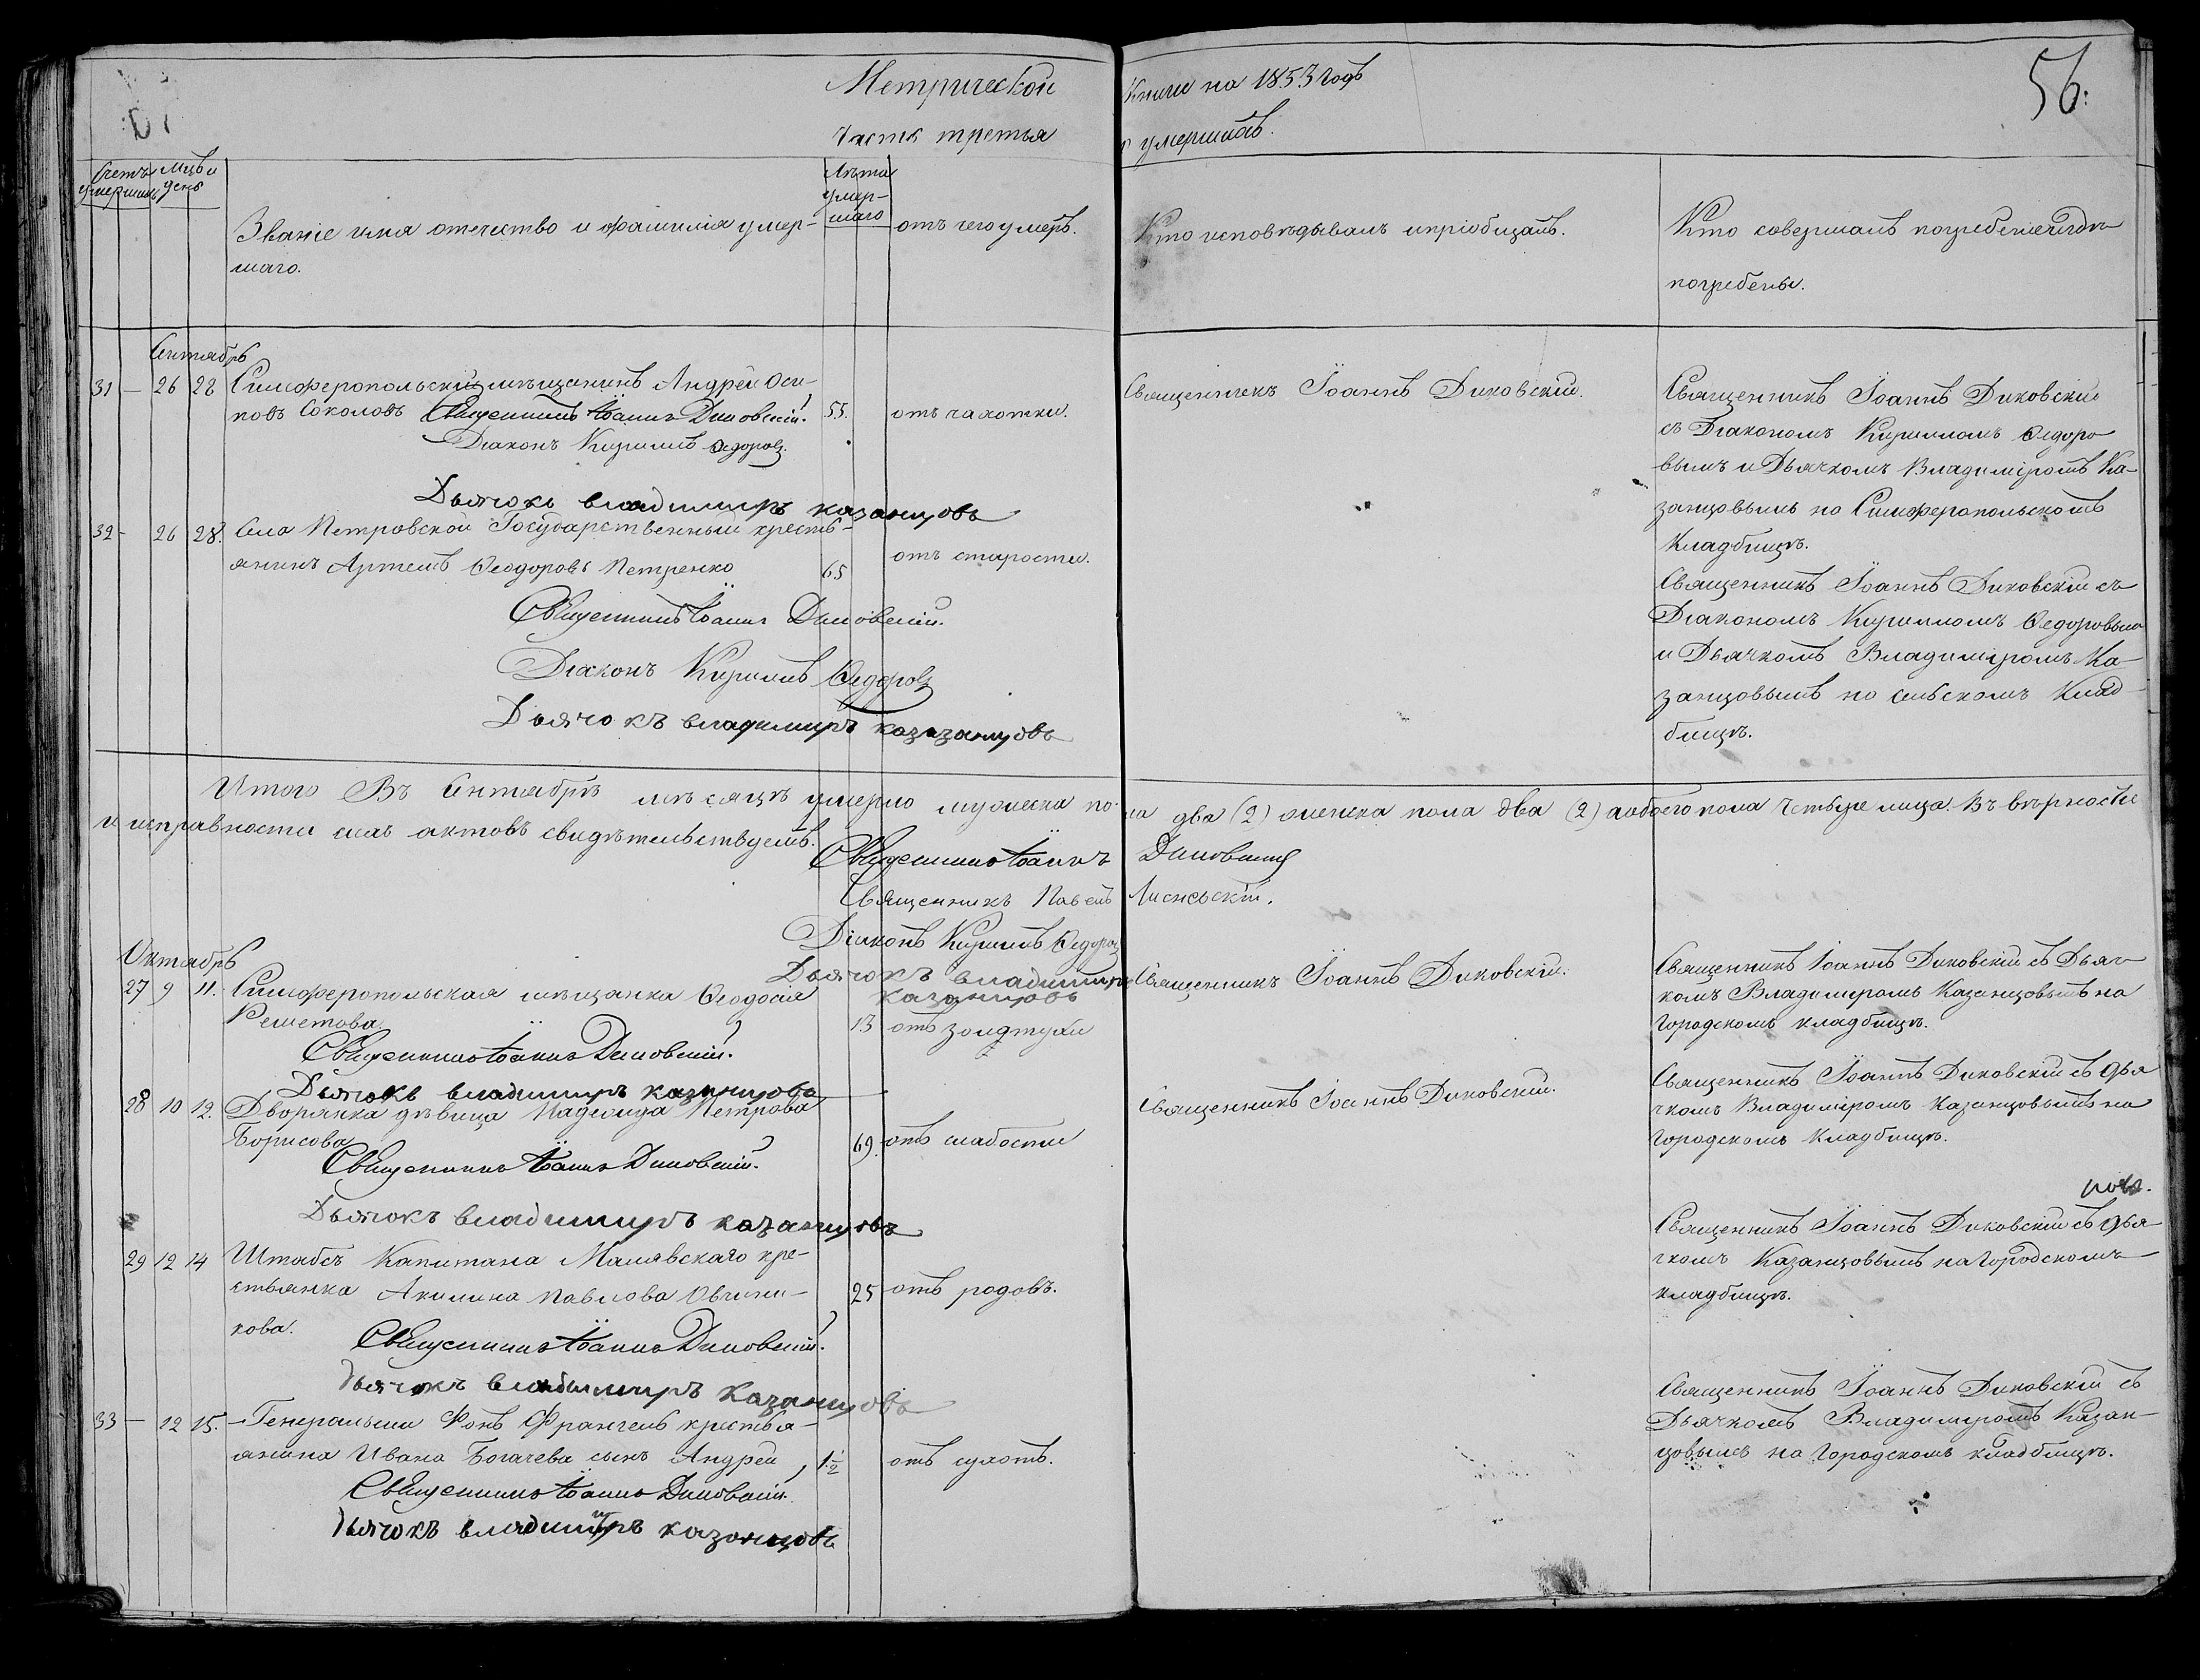 Метрической книги на 1853 годъ
56.
Часть третья о умершихъ.
Счетъ умершихъ
Мѣсъ и день
Званіе имя отечество и фамилія умер-
шаго.
Лѣта умер-
шаго
отъ чего умеръ.
Кто исповѣдывалъ и пріобщалъ.
Кто совершалъ погребеніе и гдѣ
погребены.
Сентябрь
31 — 26 28 Симферопольскій мѣщанинъ Андрей Оси-
повъ Соколовъ Священникъ Іоаннъ Диковскій. 55. отъ чахотки.
Діаконъ Кириллъ Ѳедоровъ.
Дьячокъ владимиръ казанцовъ
Священникъ Іоаннъ Диковскій.
Священникъ Іоаннъ Диковскій
съ Діакономъ Кирилломъ Ѳедоро
вымъ и Дьячкомъ Владиміромъ Ка-
занцовымъ на Симферопольскомъ
Кладбищѣ.
32 - 26 28. Села Петровской Государственный кресть-
янинъ Артемъ Ѳеодоровъ Петренко 65 отъ старости.
Священникъ Іоаннъ Диковскій.
Діаконъ Кириллъ Ѳедоровъ
Дьячокъ владимиръ казазанцовъ
Священникъ Іоаннъ Диковскій съ
Діакономъ Кирилломъ Ѳедоровым
и Дьячкомъ Владиміромъ Ка-
занцовымъ на сельскомъ Клад-
бищѣ.
Итого Въ Сентябрѣ мѣсяцѣ умерло мужеска по-ла два (2) женска пола два (2) а обоего пола четыре лица. Въ вѣрности
и исправности сихъ актовъ свидѣтельствуемъ.
Священникъ Іоаннъ Диковскій
Священникъ Павелъ Лисневскій.
Діаконъ Кириллъ Ѳедоровъ
Дьячокъ владимиръ
казанцовъ
Октябрь
27 9 11. Симферопольская мѣщанка Ѳеодосія
Решетова 13 отъ золотухи
Священникъ Іоаннъ Диковскій.
Дьячокъ владимиръ казанцовъ
Священникъ Іоаннъ Диковскій.
Священникъ Іоаннъ Диковскій съ Дьяч
комъ Владимиромъ Казанцовымъ на
Городскомъ кладбищѣ.
28 10 12. Дворянка дѣвица Надежда Петрова
Борисова 69. отъ слабости
Священникъ Іоаннъ Диковскій.
Дьячокъ владимиръ казанцовъ
Священникъ Іоаннъ Диковскій.
Священникъ Іоаннъ Диковскій съ дья
чкомъ Владиміромъ Казанцовымъ на
Городскомъ Кладбищѣ.
29 12 14 Штабсъ Капитана Малявскаго кре-
стьянка Акилина Павлова Овчини-
кова. 25 отъ родовъ.
Священникъ Іоаннъ Диковскій.
Дьячокъ владимиръ Казанцовъ
Священникъ Іоаннъ Диковскій съ дья
чкомъ Казанцовымъ на Городскомъ
кладбищѣ.
33 — 12 15. Генеральши Фонъ Франгель крестья-
янина Ивана Богачева сынъ Андрей 1 1/2 отъ сухотъ.
Священникъ Іоаннъ Диковскій.
Дьячокъ владимиръ казанцовъ
Священникъ Іоаннъ Диковскій съ
Дьячкомъ Владимиромъ Казан-
цовымъ на Городскомъ кладбищѣ.